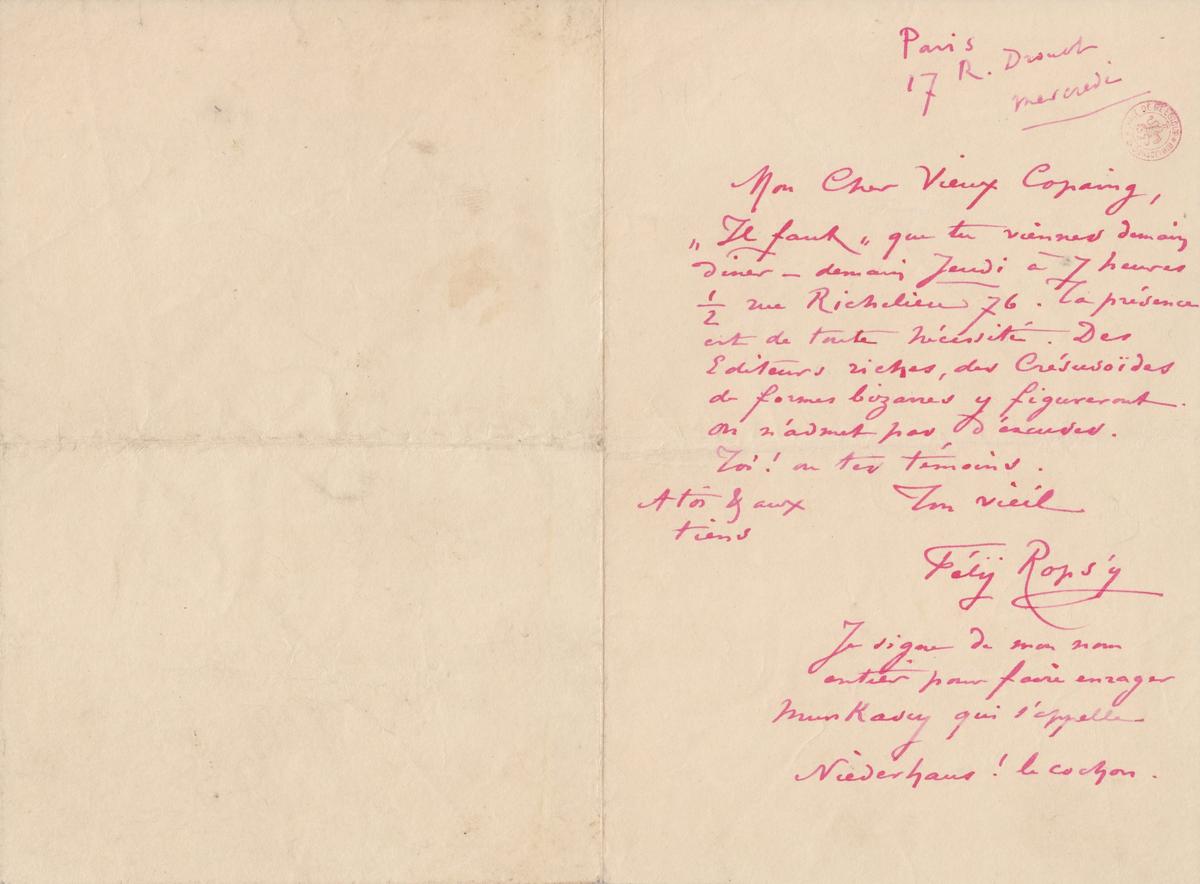 Paris
17 R. Drouot
mercredi
Mon Cher Vieux Copaing,
„ Il faut „ que tu viennes demain
diner – demain Jeudi à 7 heures
½ rue Richelieu 76. Ta présence
est de toute nécessité. Des
Editeurs riches, des Crésusoïdes
de formes bizarres y figureront.
on n'admet pas d'excuses.
Toi ! ou tes témoins.
A toi & aux
tiens
Ton vieil
Félÿ Rops'y
Je signe de mon nom
entier pour faire enrager
Munkascy qui s'appelle
Niederhaus ! le cochon.